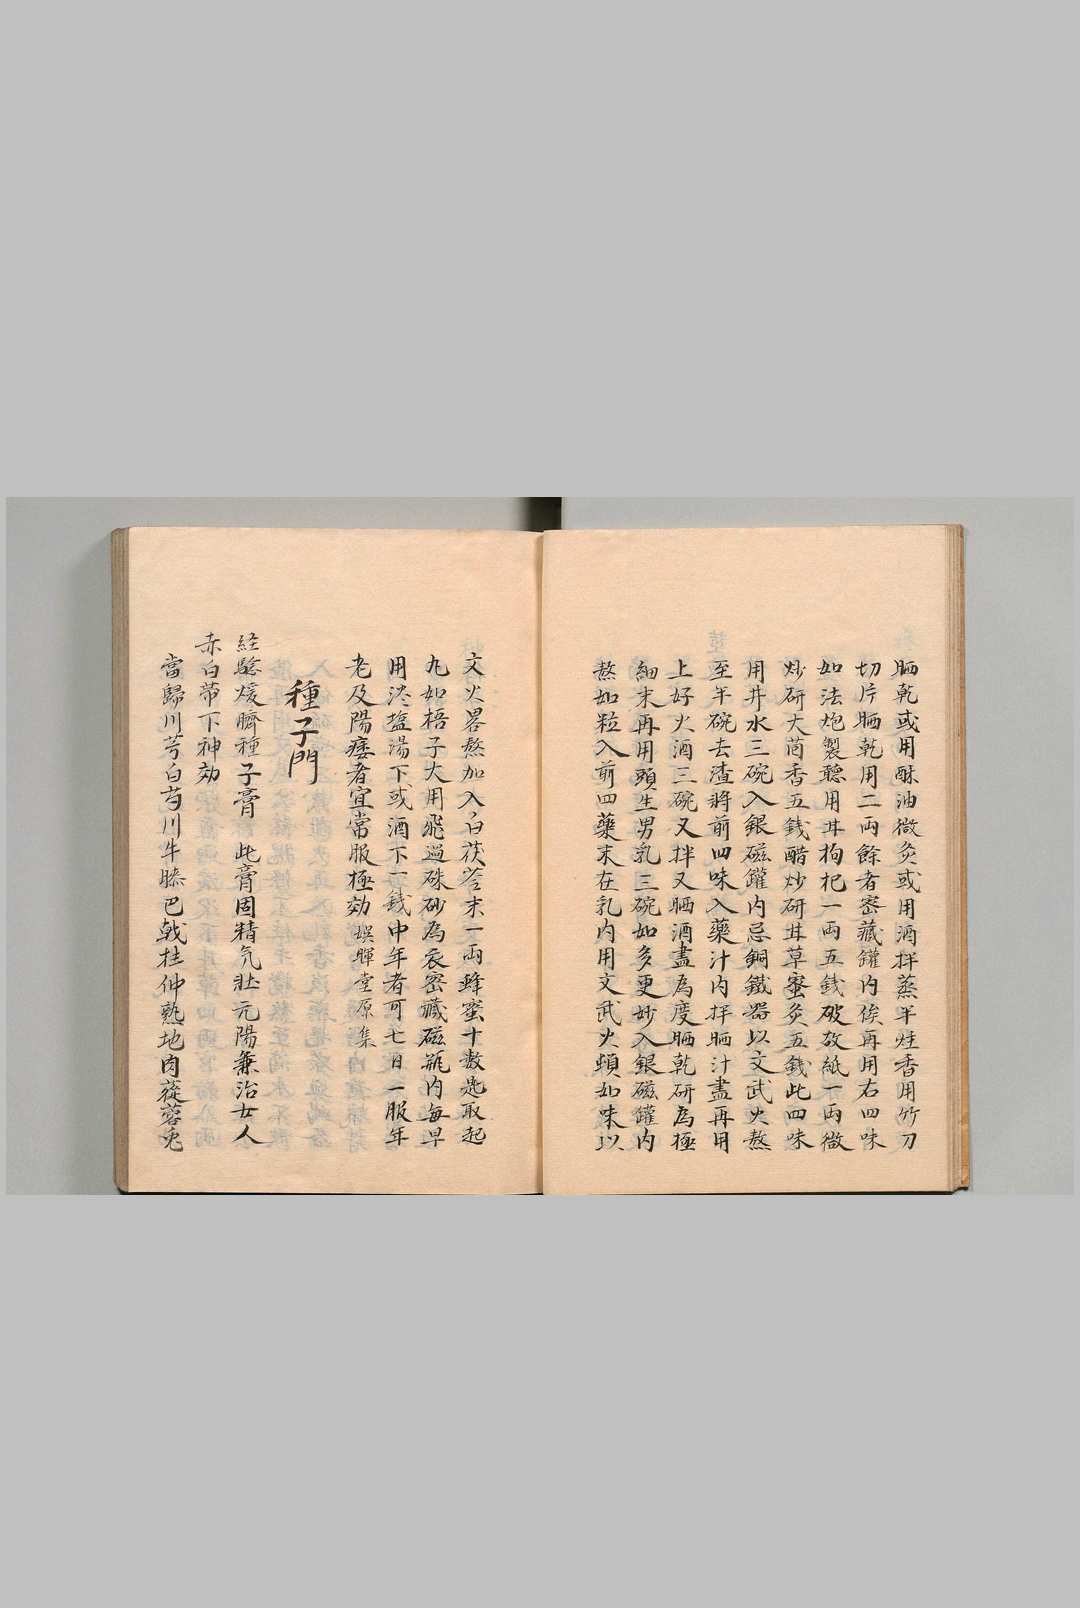 晒乾或用酥油微炙或用酒拌蒸半炷香用竹刀
切片晒乾用二兩餘者密藏罐内俟再用右四味
如法炮製聽用甘枸杞一兩五錢破故紙一兩微
炒研大茴香五錢醋炒研甘草蜜炙五錢此四味
用井水三碗入銀磁罐内忌銅鐵器以文武火熬
至半碗去渣將前四味入藥汁内拌晒汁盡再用
上好火酒三碗又拌又晒酒盡為度晒乾研為極
細末再用頭生男乳三碗如多更妙入銀磁罐内
熬如粒入前四藥末在乳内用文武火頓如味以
文火畧熬加入白茯苓末一兩蜂蜜十数匙取起
丸如梧子大用飛過硃砂為衣密藏磁瓶内每早
用淡塩湯下或酒下一錢中年者可七日一服年
老及陽痿者宜常服極効 娛暉堂原集
種子門
経驗煖臍種子膏 此膏固精気壯元陽兼治女人
赤白帶下神効
當歸川芎白芍川牛膝巴戟杜仲熟地肉蓯蓉兎